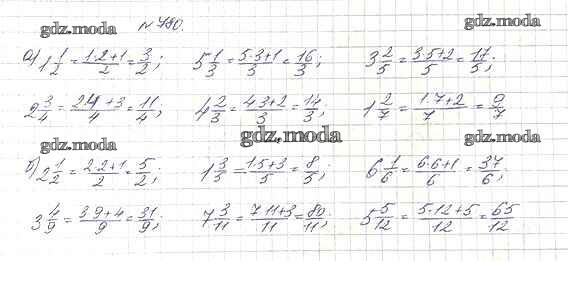 № 780.
gdz.moda gdz.moda
а) 1 1/2 = (1·2+1)/2 = 3/2; 5 1/3 = (5·3+1)/3 = 16/3; 3 2/5 = (3·5+2)/5 = 17/5;
2 3/4 = (2·4+3)/4 = 11/4; 4 2/3 = (4·3+2)/3 = 14/3; 1 2/7 = (1·7+2)/7 = 9/7
gdz.moda gdz.moda gdz.moda
б) 2 1/2 = (2·2+1)/2 = 5/2; 1 3/5 = (1·5+3)/5 = 8/5; 6 1/6 = (6·6+1)/6 = 37/6;
3 4/9 = (3·9+4)/9 = 31/9; 7 3/11 = (7·11+3)/11 = 80/11; 5 5/12 = (5·12+5)/12 = 65/12